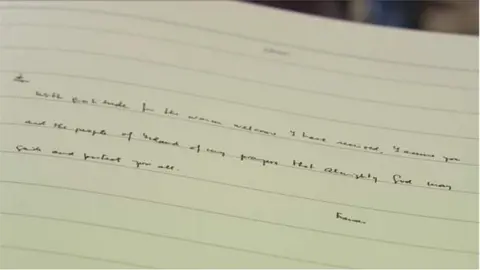 With gratitude for the warm welcome I have received, I assure you
and the people of Ireland of my prayers that Almighty God may
guide and protect you all.